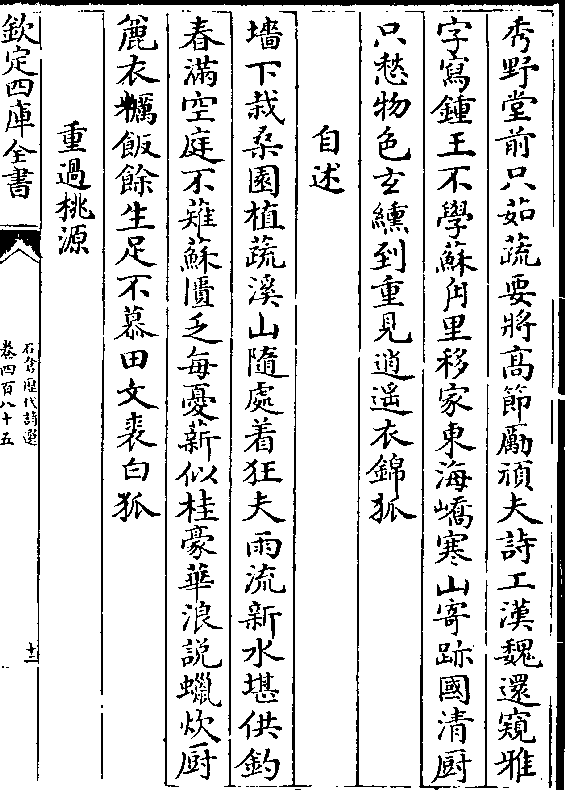 秀野堂前只茹蔬要將高節勵頑夫詩工漢魏還窺雅
字寫鍾王不學蘇甪里移家東海嶠寒山寄跡國清厨
只愁物色玄纁到重見逍遥衣錦狐
自述
墻下栽桑園植蔬溪山隨處着狂夫雨流新水堪供釣
春滿空庭不薙蘇匱乏每憂薪似桂豪華浪説蠟炊厨
麁衣糲飯餘生足不慕田文裘白狐
重過桃源
欽定四庫全書
石倉歷代詩選
卷四百八十五
十二